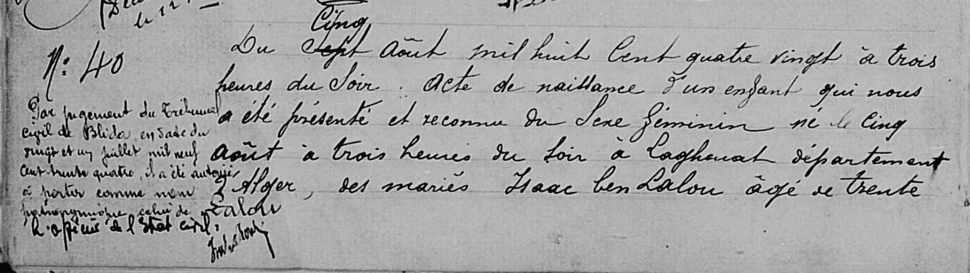 N: 40
Par jugement du Tribunal
civil de Blida, en date du
vingt et un juillet mil neuf
cent trente quatre, il a été autorisé
à porter comme nom
patronymique celui de
Lalou
L'officier de l'Etat civil,
Cinq
Du Sept Août mil huit Cent quatre vingt à trois
heures du Soir. Acte de naissance d'un enfant qui nous
a été présenté et reconnu du Sexe féminin né le Cinq
Août à trois heures du Soir à Laghouat département
d'Alger, des mariés Isaac ben Lalou âgé de trente